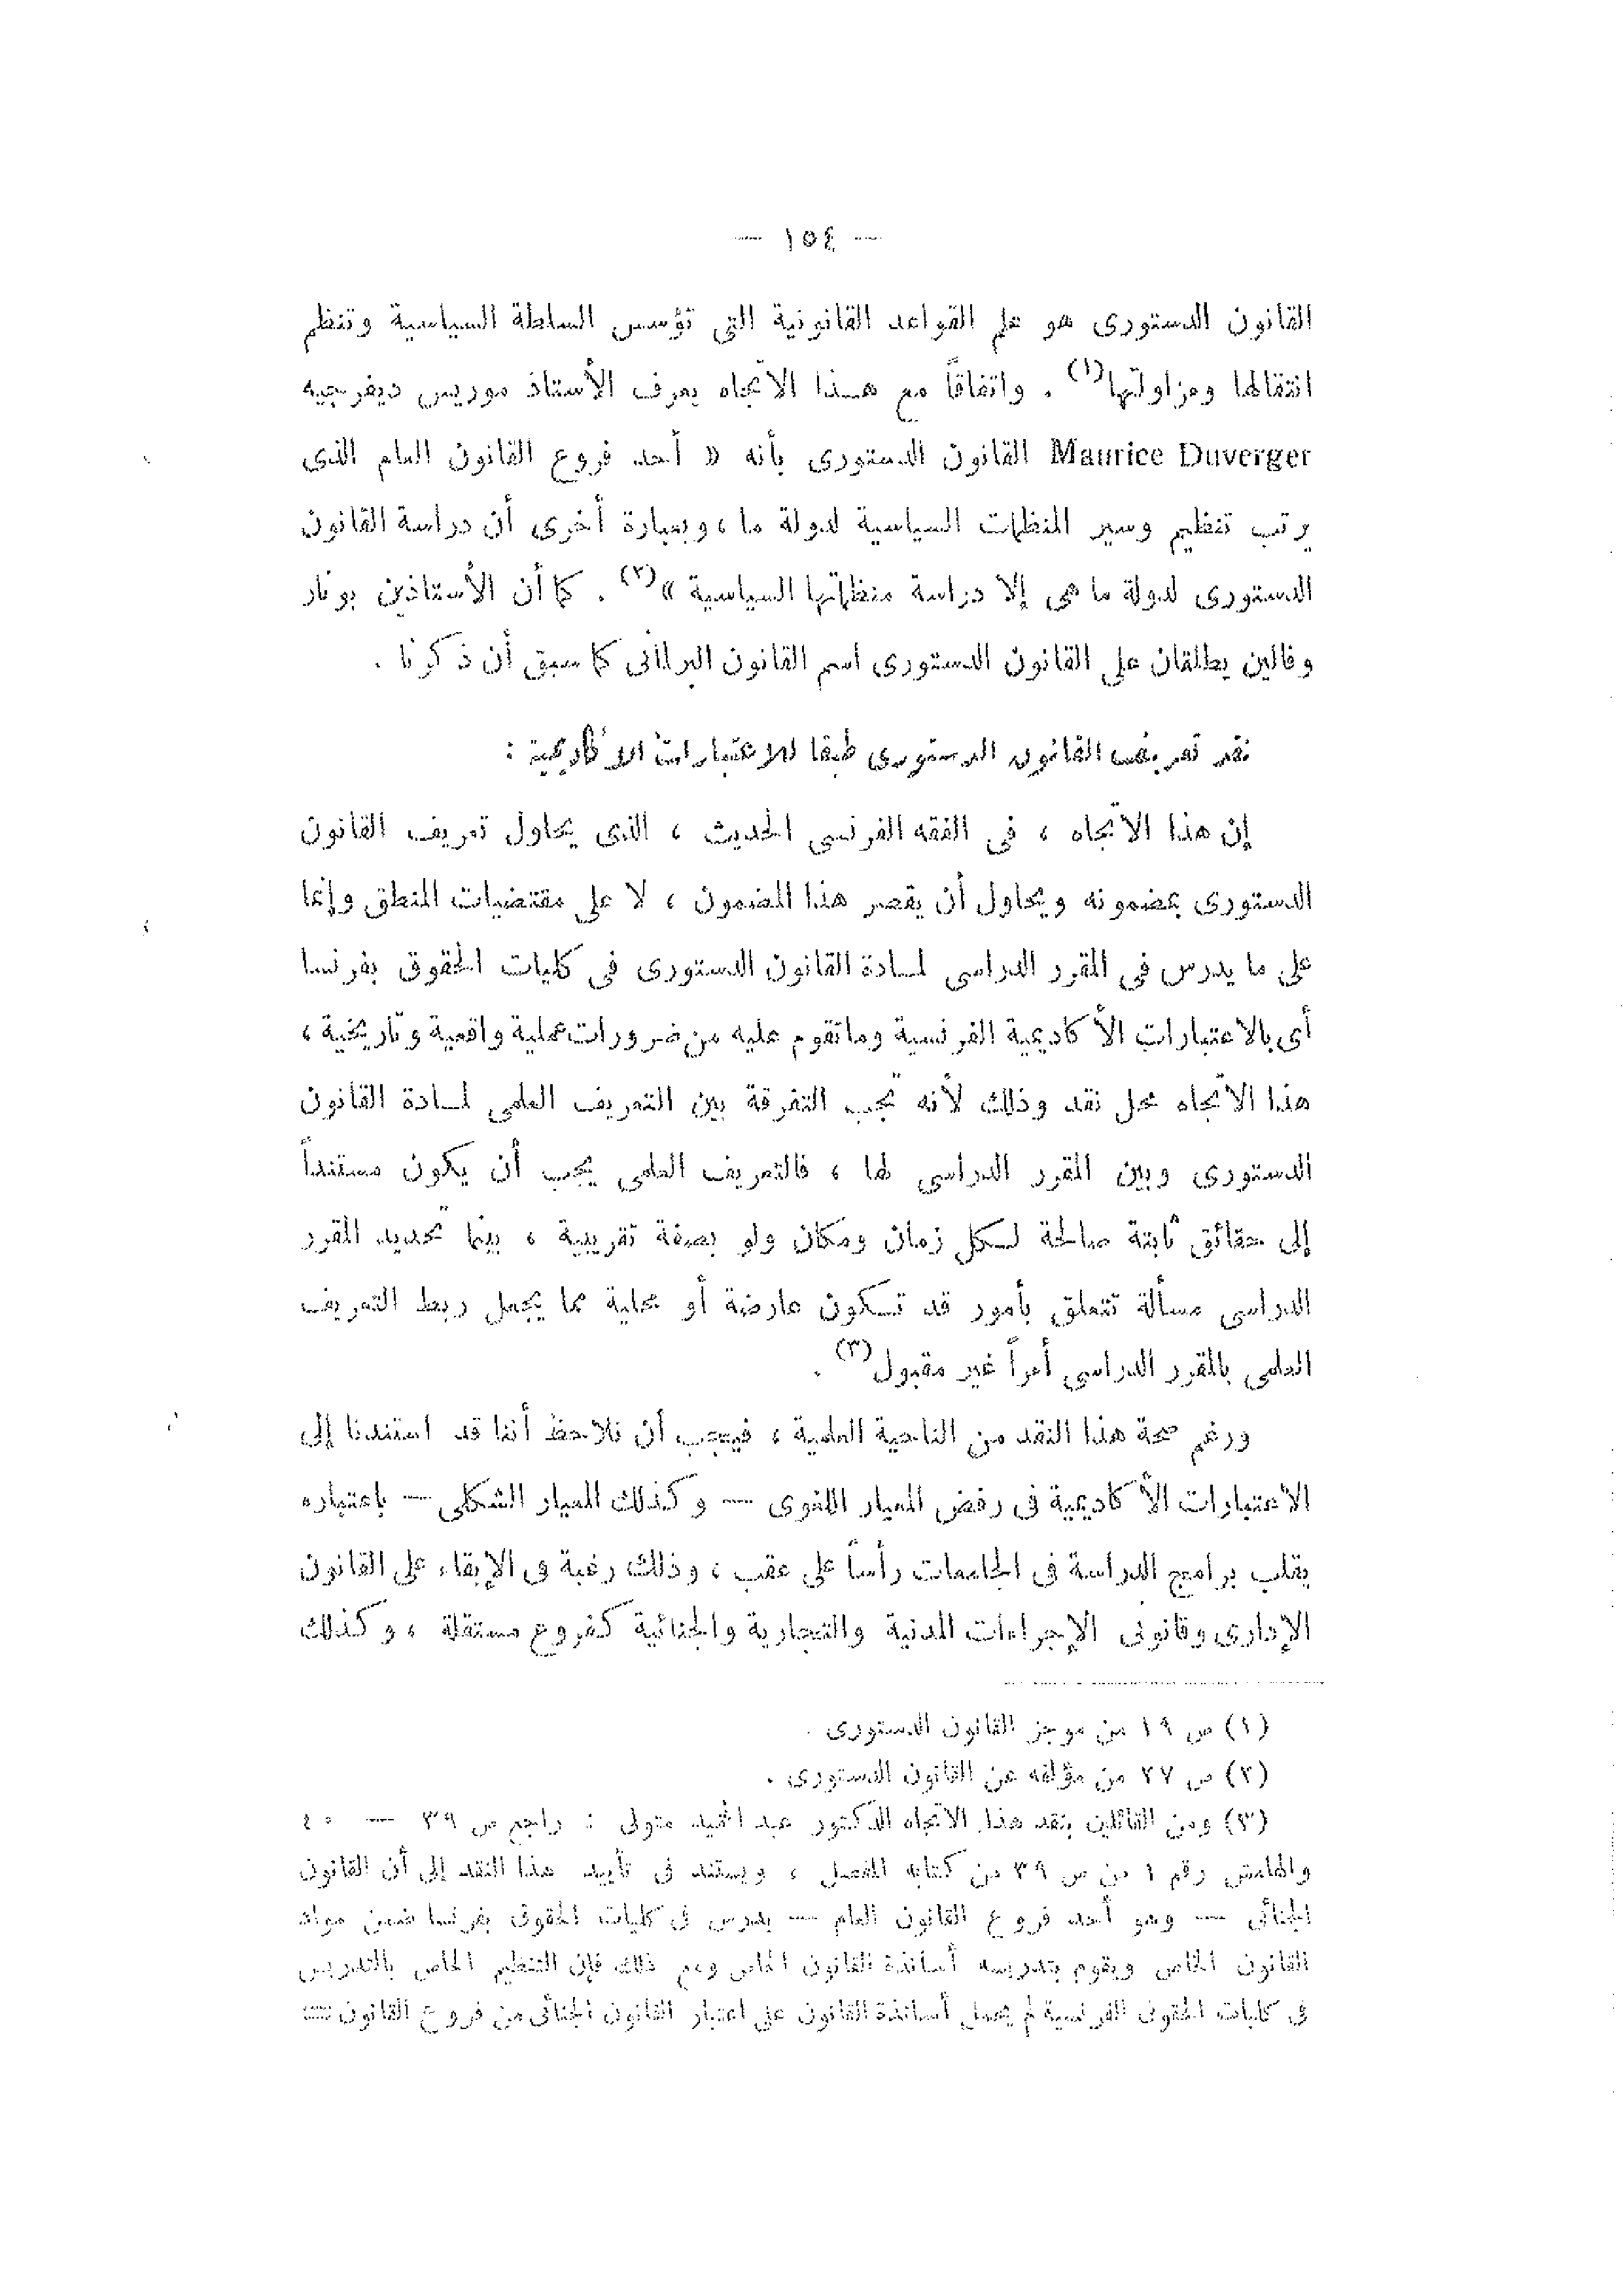 — ١٥٤ —
القانون الدستورى هو علم القواعد القانونية التى تؤسس السلطة السياسية وتنظم
انتقالها ومزاولتها(١) . واتفاقاً مع هـذا الاتجاه يعرف الأستاذ موريس ديفرجيه
Maurice Duverger القانون الدستورى بأنه « أحد فروع القانون العام الذى
يرتب تنظيم وسير المنظمات السياسية لدولة ما ، وبعبارة أخرى أن دراسة القانون
الدستورى لدولة ما هى إلا دراسة منظماتها السياسية »(٢) . كما أن الأستاذين بونار
وفالين يطلقان على القانون الدستورى اسم القانون البرلمانى كما سبق أن ذكرنا .
نقد تعريف القانون الدستورى طبقا للاعتبارات الأكاديمية :
إن هذا الاتجاه ، فى الفقه الفرنسى الحديث ، الذى يحاول تعريف القانون
الدستورى بمضمونه ويحاول أن يقصر هذا المضمون ، لا على مقتضيات المنطق وإنما
على ما يدرس فى المقرر الدراسى لمـادة القانون الدستورى فى كليات الحقوق بفرنسا
أى بالاعتبارات الأكاديمية الفرنسية وما تقوم عليه من ضرورات عملية واقعية وتاريخية ،
هذا الاتجاه محل نقد وذلك لأنه تجب التفرقة بين التعريف العلمى لمـادة القانون
الدستورى وبين المقرر الدراسى لها ، فالتعريف العلمى يجب أن يكون مستنداً
إلى حقائق ثابتة صالحة لـكل زمان ومكان ولو بصفة تقريبية ، بينما تحديد المقرر
الدراسى مسألة تتعلق بأمور قد تـكون عارضة أو محلية مما يجعل ربط التعريف
العلمى بالمقرر الدراسى أمراً غير مقبول(٣) .
ورغم صحة هذا النقد من الناحية العلمية ، فيجب أن نلاحظ أننا قد استندنا إلى
الاعتبارات الأكاديمية فى رفض المعيار اللغوى — وكذلك المعيار الشكلى — باعتباره
يقلب برامج الدراسة فى الجامعات رأساً على عقب ، وذلك رغبة فى الإبقاء على القانون
الإدارى وقانونى الإجراءات المدنية والتجارية والجنائية كفروع مستقلة ، وكذلك
(١) ص ١٩ من موجز القانون الدستورى .
(٢) ص ٢٧ من مؤلفه عن القانون الدستورى .
(٣) ومن القائلين بنقد هذا الاتجاه الدكتور عبد الحميد متولى : راجع ص ٣٩ — ٤٠
والهامش رقم ١ من ص ٣٩ من كتابه المفصل ، ويستند فى تأييد هذا النقد إلى أن القانون
الجنائى — وهو أحد فروع القانون العام — يدرس فى كليات الحقوق بفرنسا ضمن مواد
القانون الخاص ويقوم بتدريسه أساتذة القانون الخاص ومع ذلك فإن التنظيم الخاص بالتدريس
فى كليات الحقوق الفرنسية لم يحمل أساتذة القانون على اعتبار القانون الجنائى من فروع القانون =